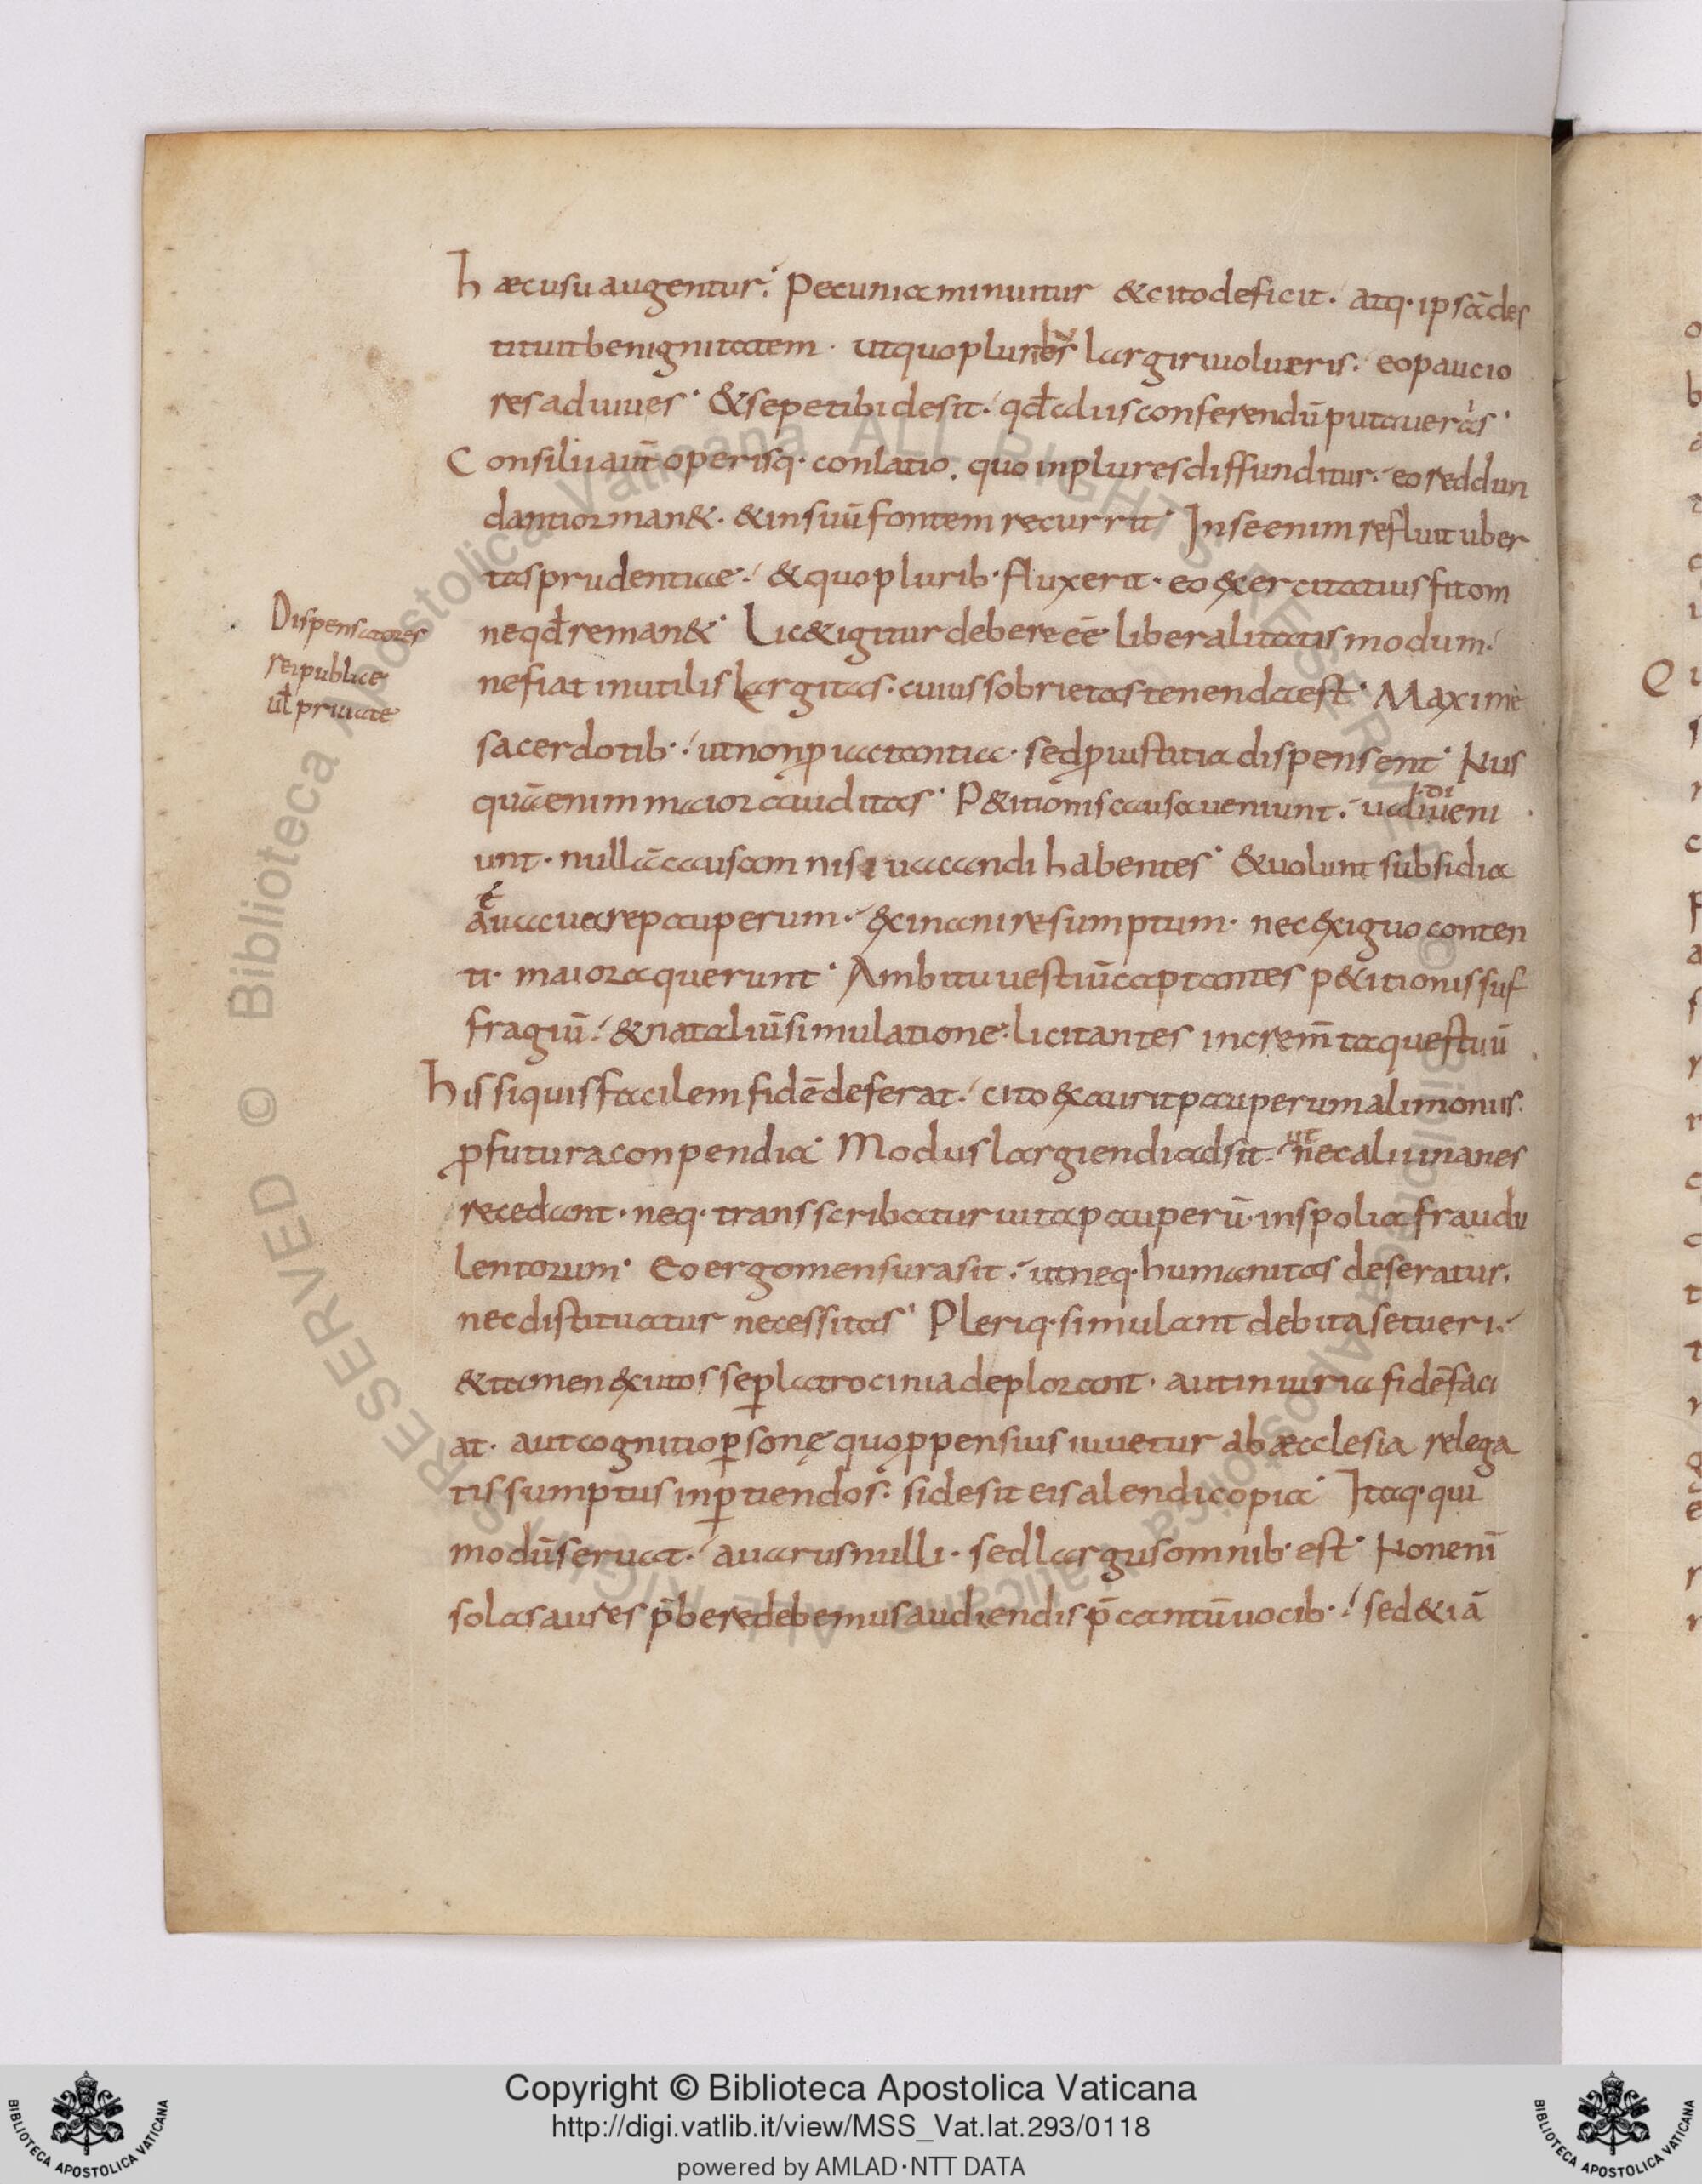 hæc usu augentur. Pecunia minuitur & cito deficit. atq· ipsā des
tituit benignitatem. ut quo pluribꝰ largiri uolueris. eo paucio
res adiuues. & sepe tibi desit. qđ aliis conferendū putaueris.
Consilii aut̄ operisq· conlatio. quo in plures diffunditur. eo reddun
dantior man&. & in suū fontem recurrit. In se enim refluit uber
tas prudentiae. & quo plurib· fluxerit. eo exercitatius fit om
ne qđ reman&. Lic& igitur debere eē liberalitatis modum.
Dispensatores
reipublice
ul̄ priuate
ne fiat inutilis largitas. cuius sobrietas tenenda est. Maxime
sacerdotib·. ut non ꝓ iactantia. sed ꝓ iustitia dispensent. Nus
quā enim maior auiditas. P&itionis causa ueniunt. ualidi ueni
unt. nullā causam nisi uacandi habentes. & uolunt subsidia
euacuare pauperum. exinanire sumptum. nec exiguo conten
ti. maiora querunt. Ambitu uestiū captantes p&itionis suf
fragiū. & nataliū simulatione. licitantes increm̄ta questuū
his si quis facilem fidē deferat. cito exaurit pauperum alimoniis.
ꝓfutura conpendia. Modus largiendi adsit. ut nec alii inanes
recedant. neq· transscribatur uita pauperū. in spolia fraudu
lentorum. Eo ergo mensura sit. ut neq· humanitas deseratur.
nec distituatur necessitas. Pleriq· simulant debita. setueri.
& tamen exutos se ꝑ latrocinia deplorant. aut iniuria fidē faci
at. aut cognitio ꝑsonę quo ꝓpensius iuuetur ab æcclesia relega
tis sumptus inꝑtiendos. si desit eis alendi copia. Itaq· qui
modū seruat. auarus nulli. sed largus omnib· est. Non enī
solas aures p̄bere debemus audiendis p̄cantū uocib·. sed & iā
Copyright © Biblioteca Apostolica Vaticana
http://digi.vatlib.it/view/MSS_Vat.lat.293/0118
powered by AMLAD·NTT DATA
BIBLIOTECA APOSTOLICA VATICANA
BIBLIOTECA APOSTOLICA VATICANA
© Biblioteca Apostolica Vaticana ALL RIGHTS RESERVED